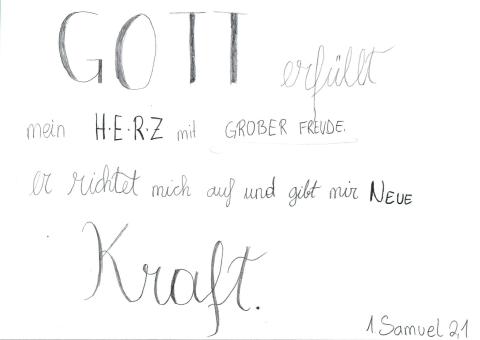 GOTT erfüllt
mein H·E·R·Z mit GROßER FREUDE.
er richtet mich auf und gibt mir NEUE
Kraft.
1 Samuel 2,1